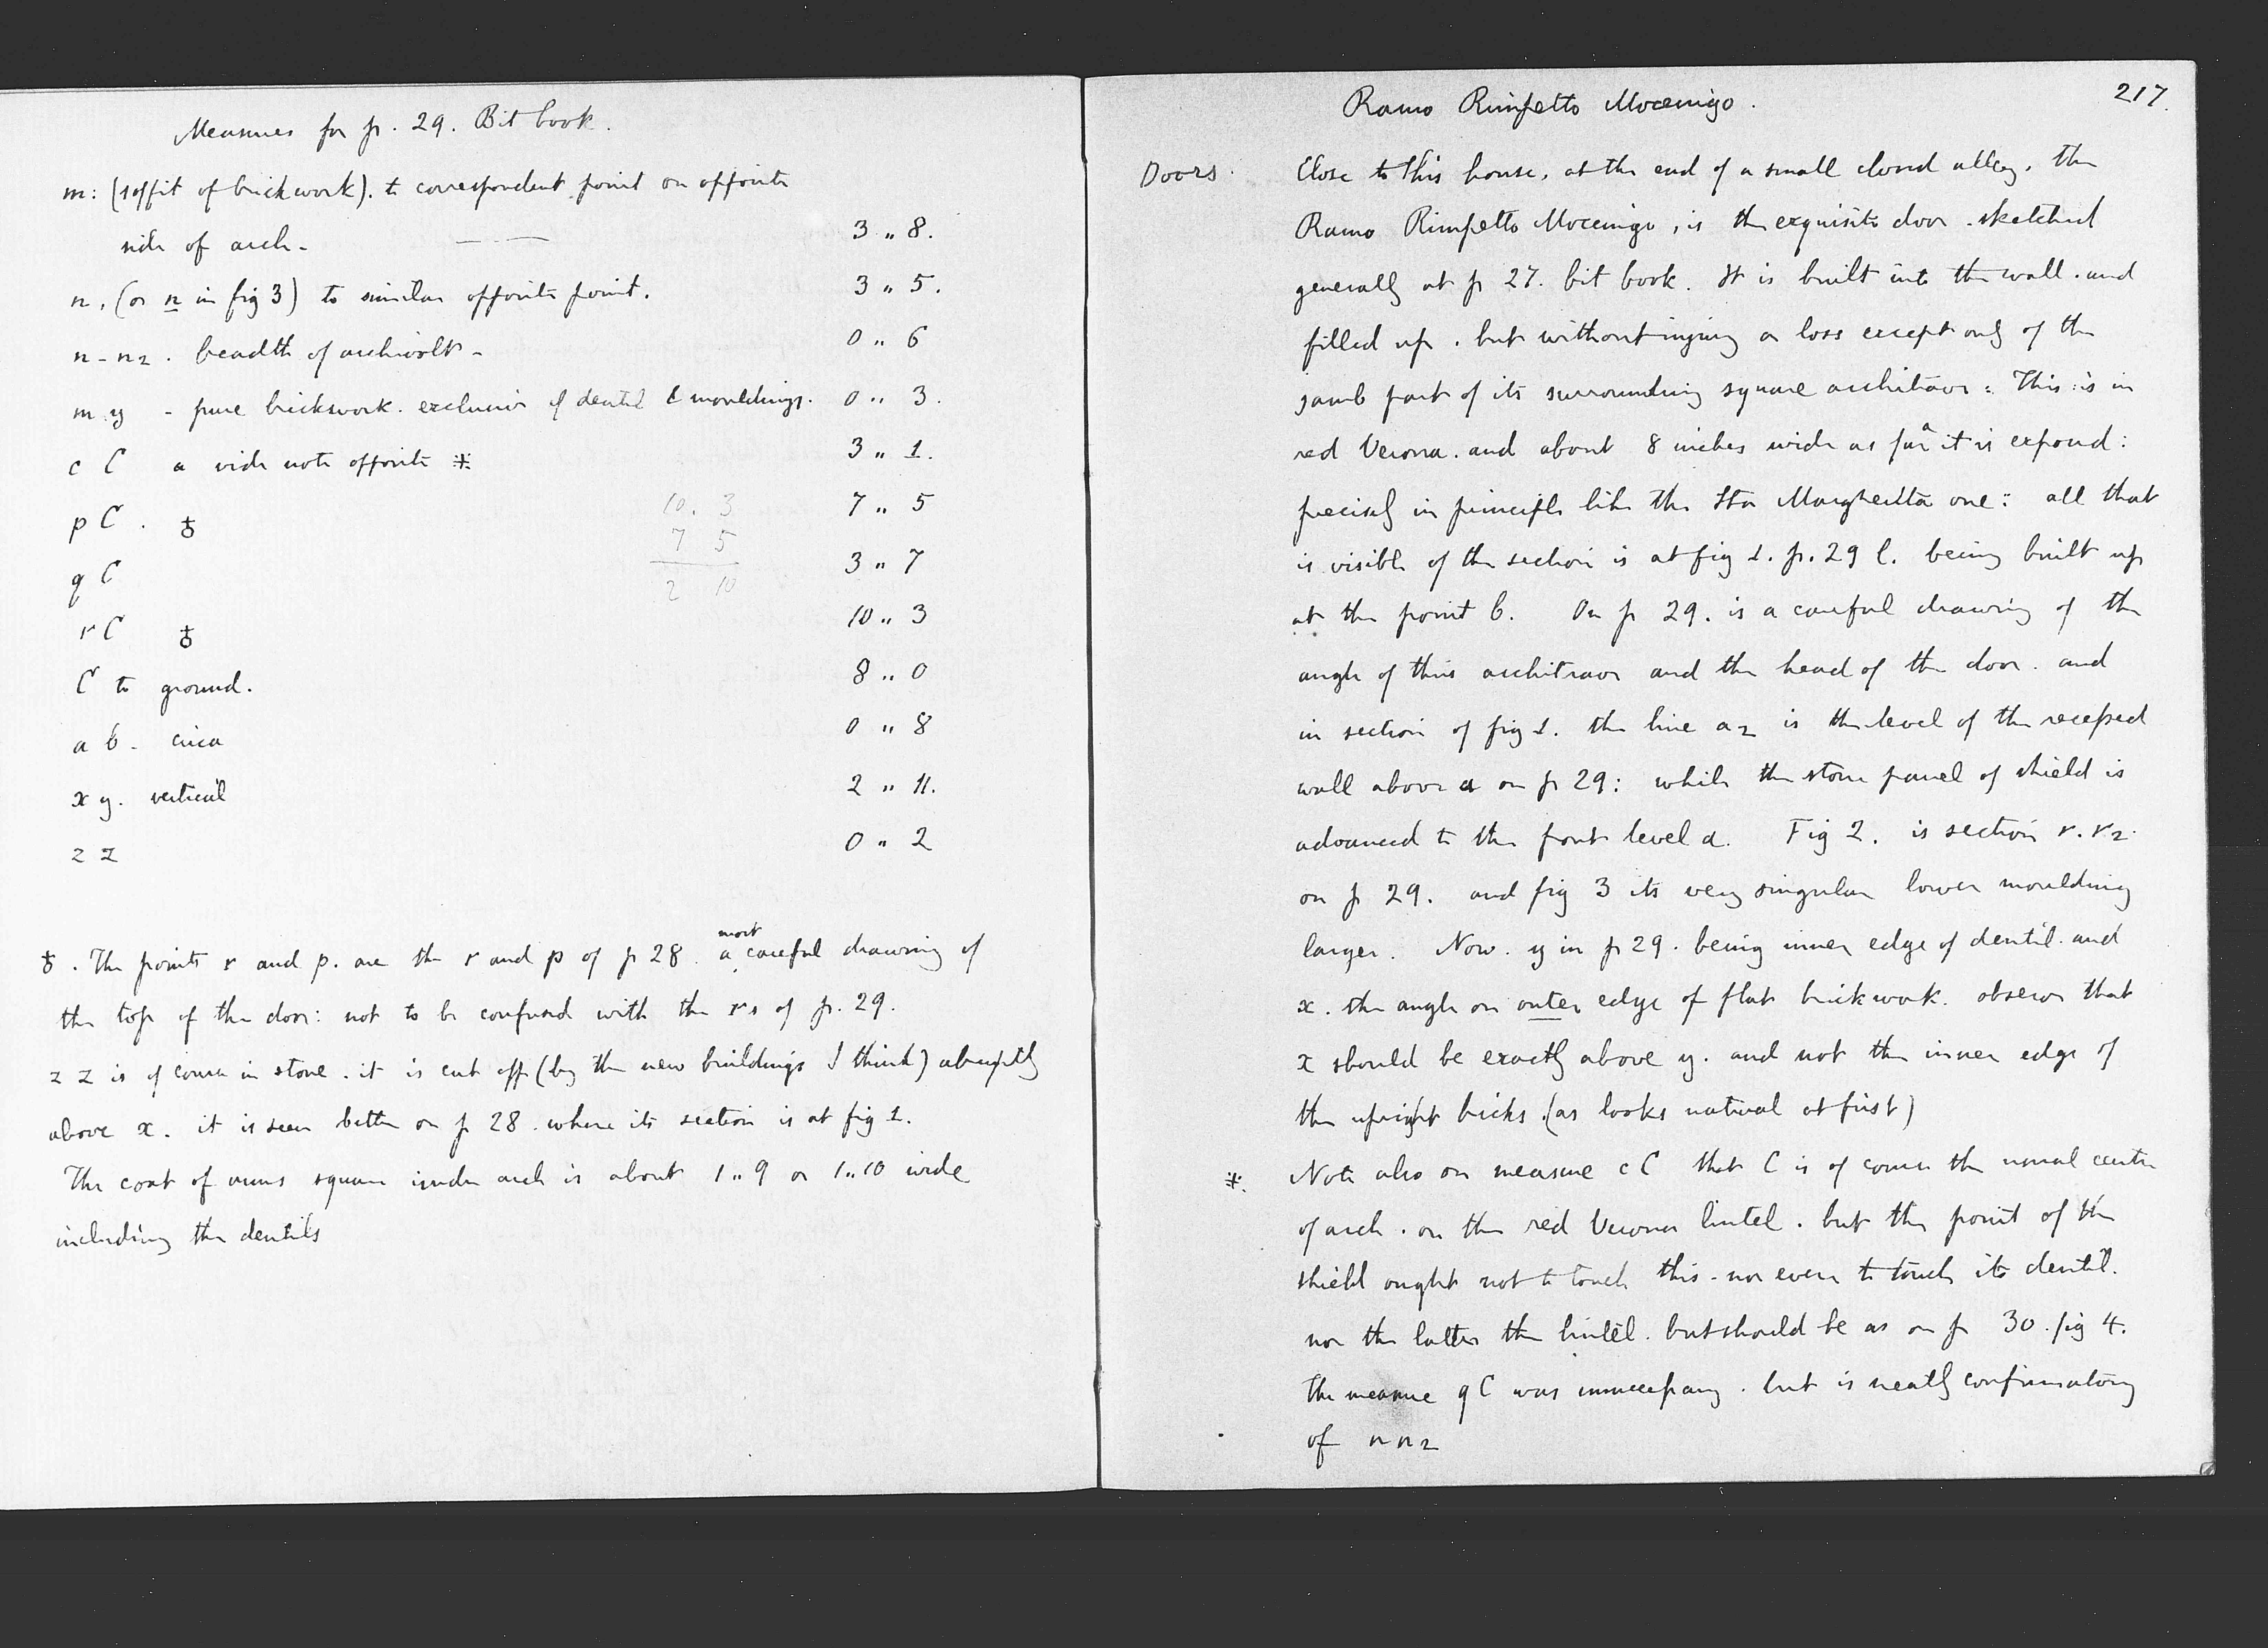 Measures for p. 29. Bit book.
m: (soffit of brickwork). to correspondent point on opposite
side of arch - 3 " 8.
n, (or n in fig 3) to similar opposite point. 3 " 5.
n - n2. beadth of archivolt - 0 " 6
m y - pure brickwork. exclusive of dentil & mouldings. 0 " 3.
c C a vide note opposite ⁜ 3 " 1.
p C. ♁ 7 " 5
10. 3
7 5
2 10
q C 3 " 7
r C ♁ 10 " 3
C to ground. 8 " 0
a b - circa 0 " 8
x y. vertical 2 " 11.
z Z 0 " 2
♁. The points r and p. are the r and p of p 28. a most careful drawing of
the top of the door: not to be confused with the rs of p. 29.
z Z is of course in stone. it is cut off (by the new buildings I think) abruptly
above x. it is seen better on p 28. where its section is at fig 1.
The coat of arms square under arch is about 1 " 9 or 1 " 10 wide
including the dentils
217.
Ramo Rimpetto Mocenigo.
Doors. Close to this house, at the end of a small closed alley, the
Ramo Rimpetto Mocenigo, is the exquisite door. sketched
generally at p 27. bit book. It is built into the wall. and
filled up. but without injury or loss except only of the
jamb part of its surrounding square architrave: This: is in
red Verona. and about 8 inches wide as far it is exposed:
precisely in principle like the Sta Margherita one: all that
is visible of the section is at fig 1. p. 29 l. being built up
at the point b. On p 29. is a careful drawing of the
angle of this architrave and the head of the door. and
in section of fig 1. the line a2 is the level of the recessed
wall above a on p 29: while the stone panel of shield is
advanced to the front level a. Fig 2. is section r. r2.
on p 29. and fig 3 its very singular lower moulding
larger. Now. y in p 29. being inner edge of dentil. and
x. the angle on outer edge of flat brickwork. observe that
x should be exactly above y. and not the inner edge of
the upright bricks. (as looks natural at first)
⁜. Note also on measure c C that C is of course the usual centre
of arch. on the red Verona lintel. but the point of the
shield ought not to touch this - nor even to touch its dentil.
nor the latter the lintel. but should be as on p 30. fig 4.
The measure q C was unnecessary. but is neatly confirmatory
of n n2